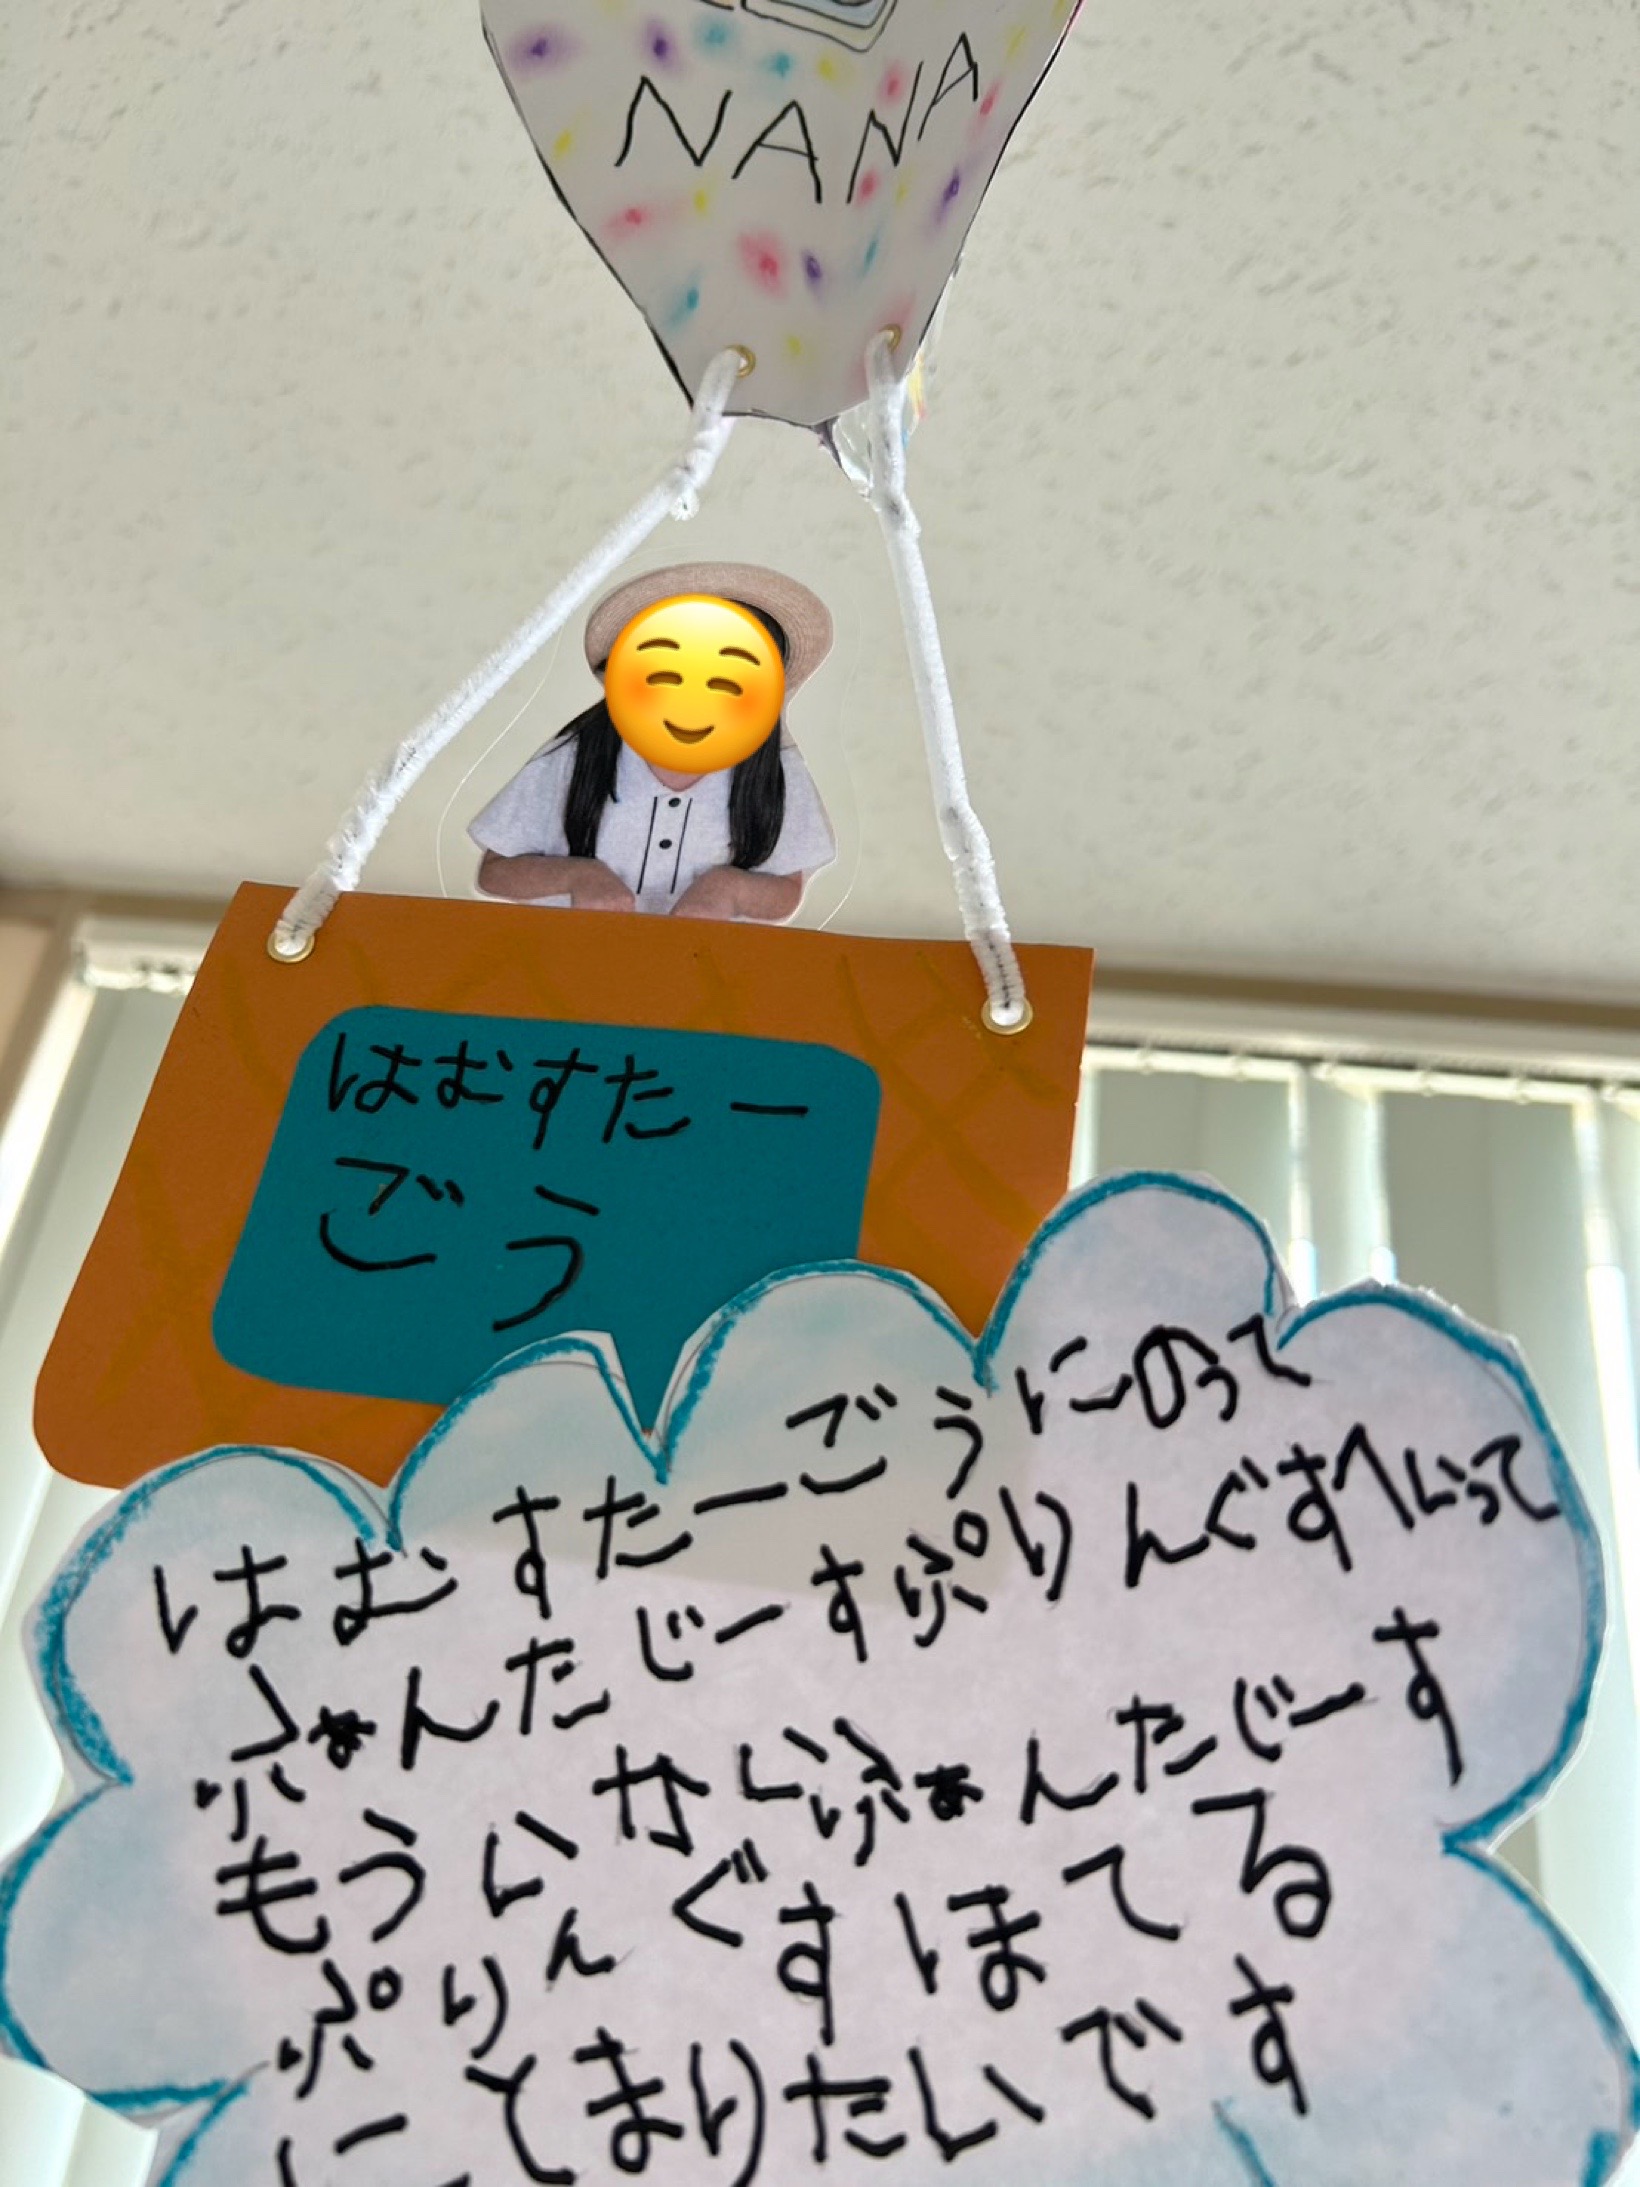 NANA
はむすたー
ごう
はむすたーごうにのって
ふぁんたじーすぷりんぐすへいって
もういっかいふぁんたじーす
ぷりんぐすほてる
にとまりたいです